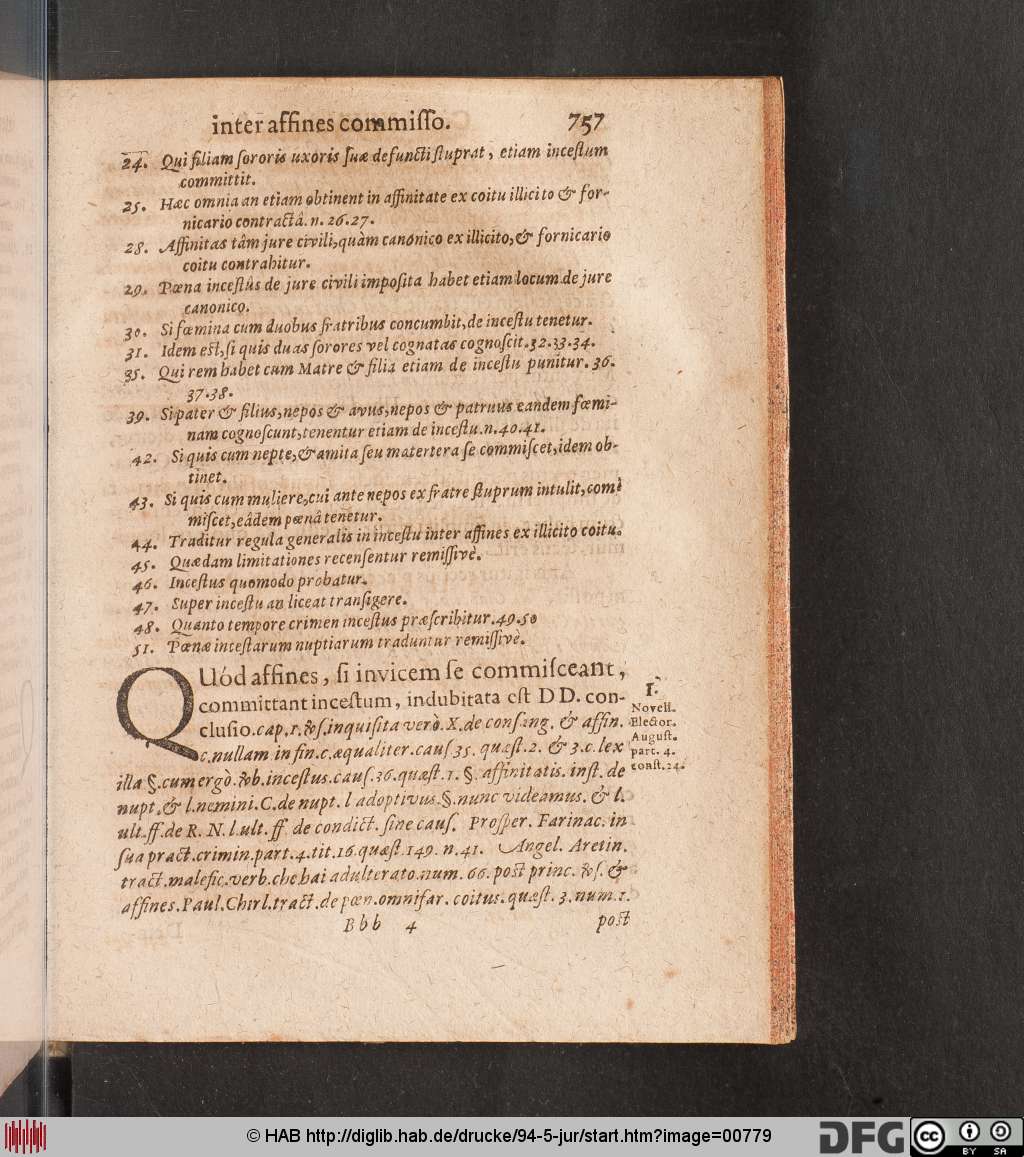 inter affines commiſſo. 757
24. Qui filiam ſororis uxoris ſuæ defuncti ſtuprat, etiam inceſtum
committit.
25. Hæc omnia an etiam obtinent in affinitate ex coitu illicito & for-
nicario contractâ. n. 26.27.
28. Affinitas tâm jure civili, quàm canonico ex illicito, & fornicario
coitu contrahitur.
29. Pœna inceſtûs de jure civili impoſita habet etiam locum de jure
canonico.
30. Si fœmina cum duobus fratribus concumbit, de inceſtu tenetur.
31. Idem eſt, ſi quis duas ſorores vel cognatas cognoſcit. 32.33.34.
35. Qui rem habet cum Matre & filia etiam de inceſtu punitur. 36.
37.38.
39. Si pater & filius, nepos & avus, nepos & patruus eandem fœmi-
nam cognoſcunt, tenentur etiam de inceſtu. n. 40.41.
42. Si quis cum nepte, & amita ſeu matertera ſe commiſcet, idem ob-
tinet.
43. Si quis cum muliere, cui ante nepos ex fratre ſtuprum intulit, com-
miſcet, eâdem pœnâ tenetur.
44. Traditur regula generalis in inceſtu inter affines ex illicito coitu.
45. Quædam limitationes recenſentur remiſſivè.
46. Inceſtus quomodo probatur.
47. Super inceſtu an liceat tranſigere.
48. Quanto tempore crimen inceſtus præſcribitur. 49.50
51. Pœnæ inceſtarum nuptiarum traduntur remiſſivè.
QUód affines, ſi invicem ſe commiſceant,
committant inceſtum, indubitata eſt DD. con-
cluſio. cap. 1. & ſ. inquiſita verò. X. de conſang. & affin.
c. nullam in fin. c. æqualiter. cauſ. 35. quæſt. 2. & 3. c. lex
illa §. cum ergò. & ob. inceſtus. cauſ. 36. quæſt. 1. §. affinitatis. inſt. de
nupt. & l. nemini. C. de nupt. l adoptivus. §. nunc videamus. & l.
ult. ff. de R. N. l. ult. ff. de condict. ſine cauſ. Proſper. Farinac. in
ſua pract. crimin. part. 4. tit. 16. quæſt. 149. n. 41. Angel. Aretin.
tract. malefic. verb. che hai adulterato. num. 66. poſt princ. & ſ. &
affines. Paul. Chirl. tract. de pœn. omnifar. coitus. quæſt. 3. num. 1.
Bbb 4 poſt
1.
Novell.
Elector.
Auguſt.
part. 4.
conſt. 24.
© HAB http://diglib.hab.de/drucke/94-5-jur/start.htm?image=00779
DFG
cc
BY SA